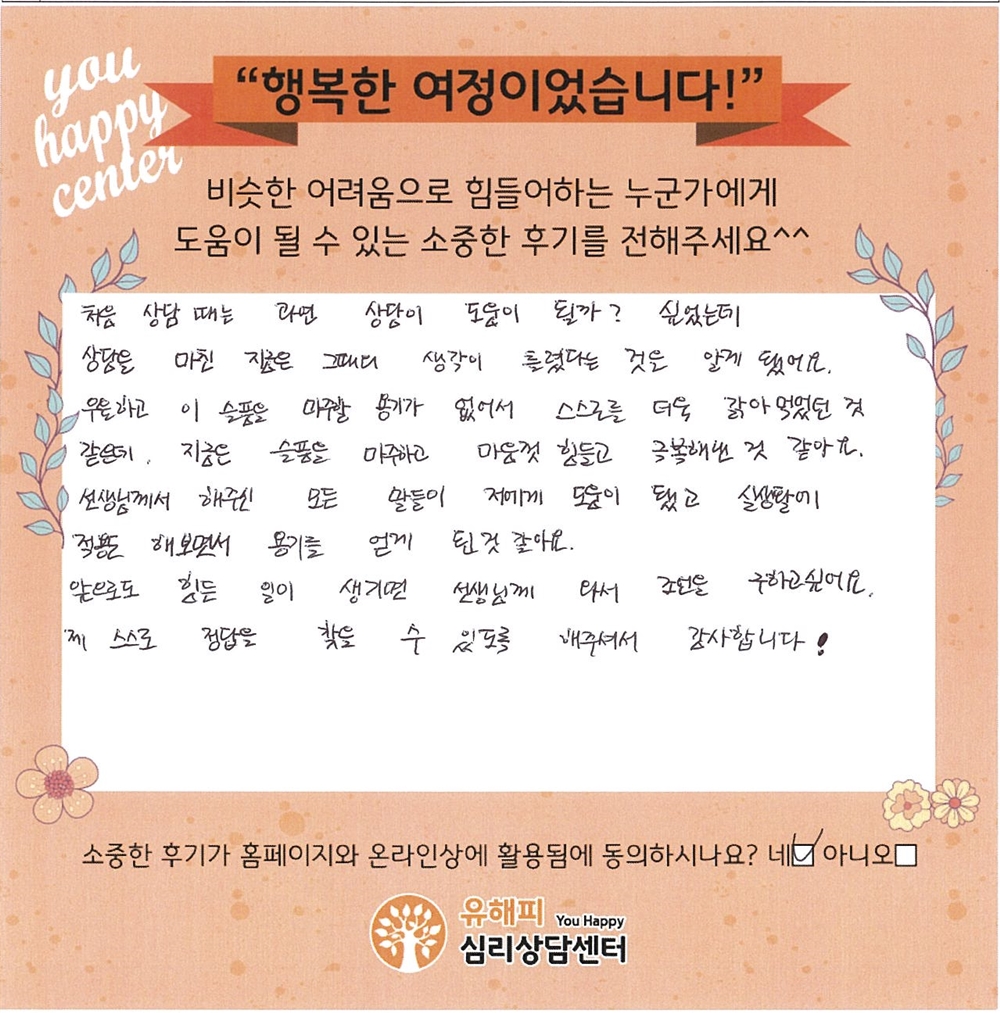 you
happy
center
“행복한 여정이었습니다!”
비슷한 어려움으로 힘들어하는 누군가에게
도움이 될 수 있는 소중한 후기를 전해주세요^^
처음 상담 때는 과연 상담이 도움이 될까? 싶었는데
상담을 마친 지금은 그때의 생각이 틀렸다는 것을 알게 됐어요.
우울하고 이 슬픔을 마주할 용기가 없어서 스스로를 더욱 갉아먹었던 것
같은데, 지금은 슬픔을 마주하고 마음껏 힘들고 극복해낸 것 같아요.
선생님께서 해주신 모든 말들이 저에게 도움이 됐고 실생활에
적용도 해보면서 용기를 얻게 된 것 같아요.
앞으로도 힘든 일이 생기면 선생님께 와서 조언을 구하고싶어요.
제 스스로 정답을 찾을 수 있도록 해주셔서 감사합니다!
소중한 후기가 홈페이지와 온라인상에 활용됨에 동의하시나요? 네☑ 아니오☐
유해피 You Happy
심리상담센터